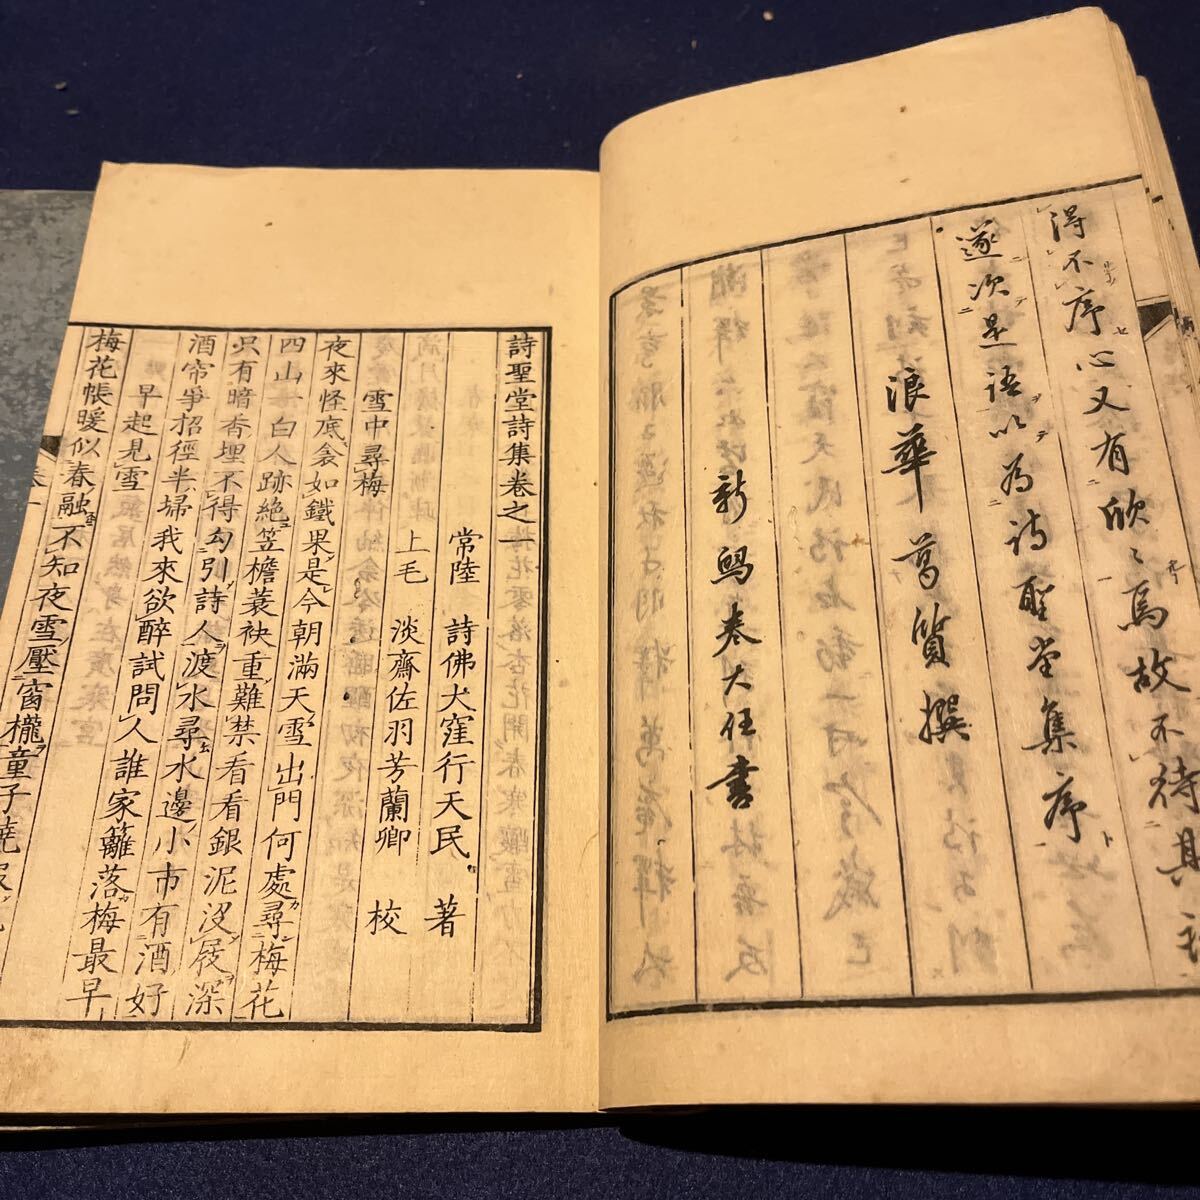 得不序心又有欣〻焉故不待其
遂次是語以為詩聖堂集序
浪華葛質撰
新興秦大任書
詩聖堂詩集卷之一
常陸 詩佛大窪行天民 著
上毛 淡齋佐羽芳蘭卿 校
雪中尋梅
夜來怪底衾如鐵果是今朝滿天雪出門何處尋梅花
四山 白人跡絶笠檐蓑袂重難禁看看銀泥沒屐深
只有暗香埋不得勾引詩人渡水尋水邊小市有酒好
酒帘爭招徑半掃我來欲醉試問人誰家籬落梅最早
早起見雪
梅花帳暖似春融不知夜雪壓窗櫳童子燒